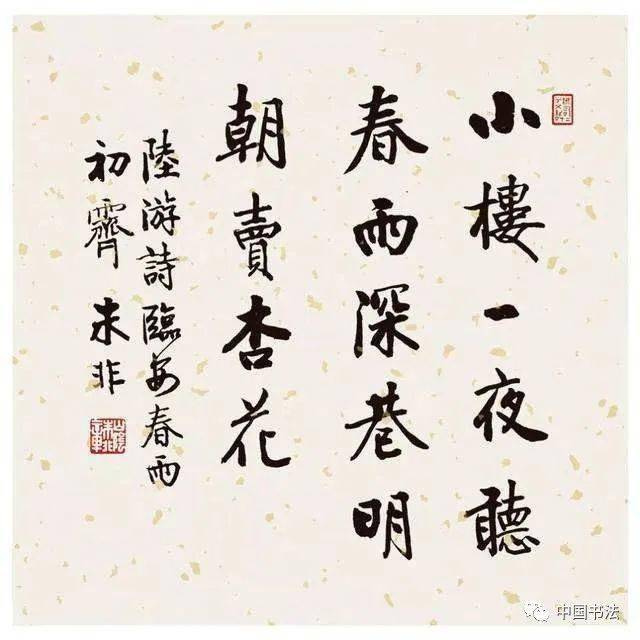 小樓一夜聽
春雨深巷明
朝賣杏花
陸游詩臨安春雨
初霽 朱非
中国书法